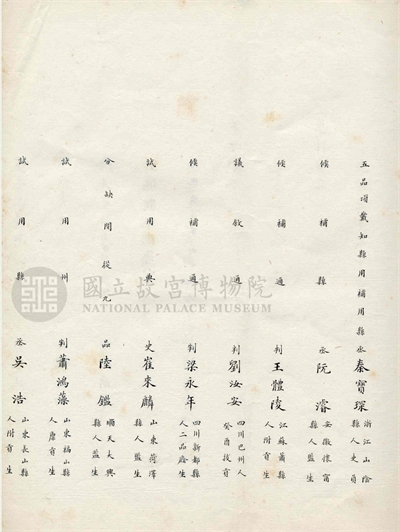 五品頂戴知縣用補用縣丞秦寶琛浙江山陰縣人吏員
候補縣丞阮濬安徽懷甯縣人監生
候補通判王體陵江蘇蕭縣人附貢生
議敘通判劉汝安四川巴州人癸酉拔貢
候補通判梁永年四川新都縣人二品廕生
試用典史崔來麟山東荷澤縣人監生
分缺間從九品陸鑑順天大興縣人監生
試用州判蕭鴻藻山東福山縣人廩貢生
試用縣丞吳浩山東長山縣人附貢生
國立故宮博物院
NATIONAL PALACE MUSEUM